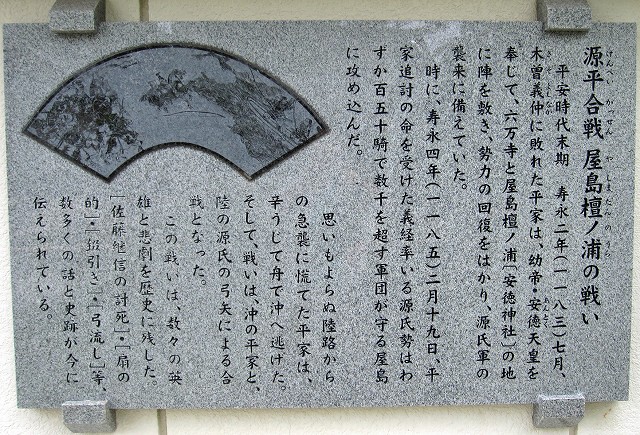 源平合戦 屋島檀ノ浦の戦い
げんぺい かっせん やしまだんのうら
平安時代末期 寿永二年(一一八三)七月、
木曽義仲に敗れた平家は、幼帝・安徳天皇を
きそよしなか
奉じて、六万寺と屋島檀ノ浦〔安徳神社〕の地
に陣を敷き、勢力の回復をはかり、源氏軍の
襲来に備えていた。
時に、寿永四年(一一八五)二月十九日、平
家追討の命を受けた義経率いる源氏勢はわ
ずか百五十騎で数千を超す軍団が守る屋島
に攻め込んだ。
思いもよらぬ陸路から
の急襲に慌てた平家は、
辛うじて舟で沖へ逃げた。
そして、戦いは、沖の平家と、
陸の源氏の弓矢による合
戦となった。
この戦いは、数々の英
雄と悲劇を歴史に残した。
「佐藤継信の討死」・「扇の
的」・「錣引き」・「弓流し」等、
数多くの話と史跡が今に
伝えられている。